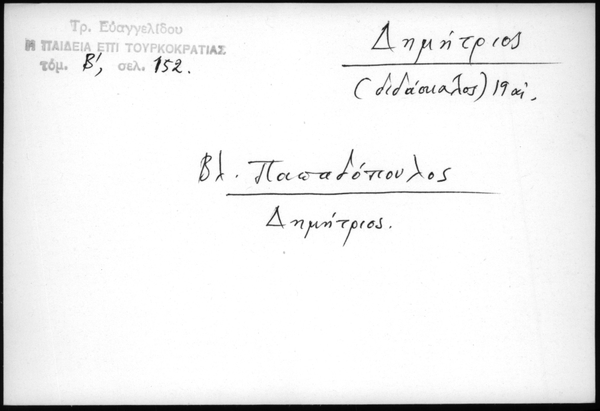 Τρ. Εὐαγγελίδου
Η ΠΑΙΔΕΙΑ ΕΠΙ ΤΟΥΡΚΟΚΡΑΤΙΑΣ
τόμ. Β', σελ. 152.
Δημήτριος
(διδάσκαλος) 19 αἰ.
Βλ. Παπαδόπουλος
Δημήτριος.